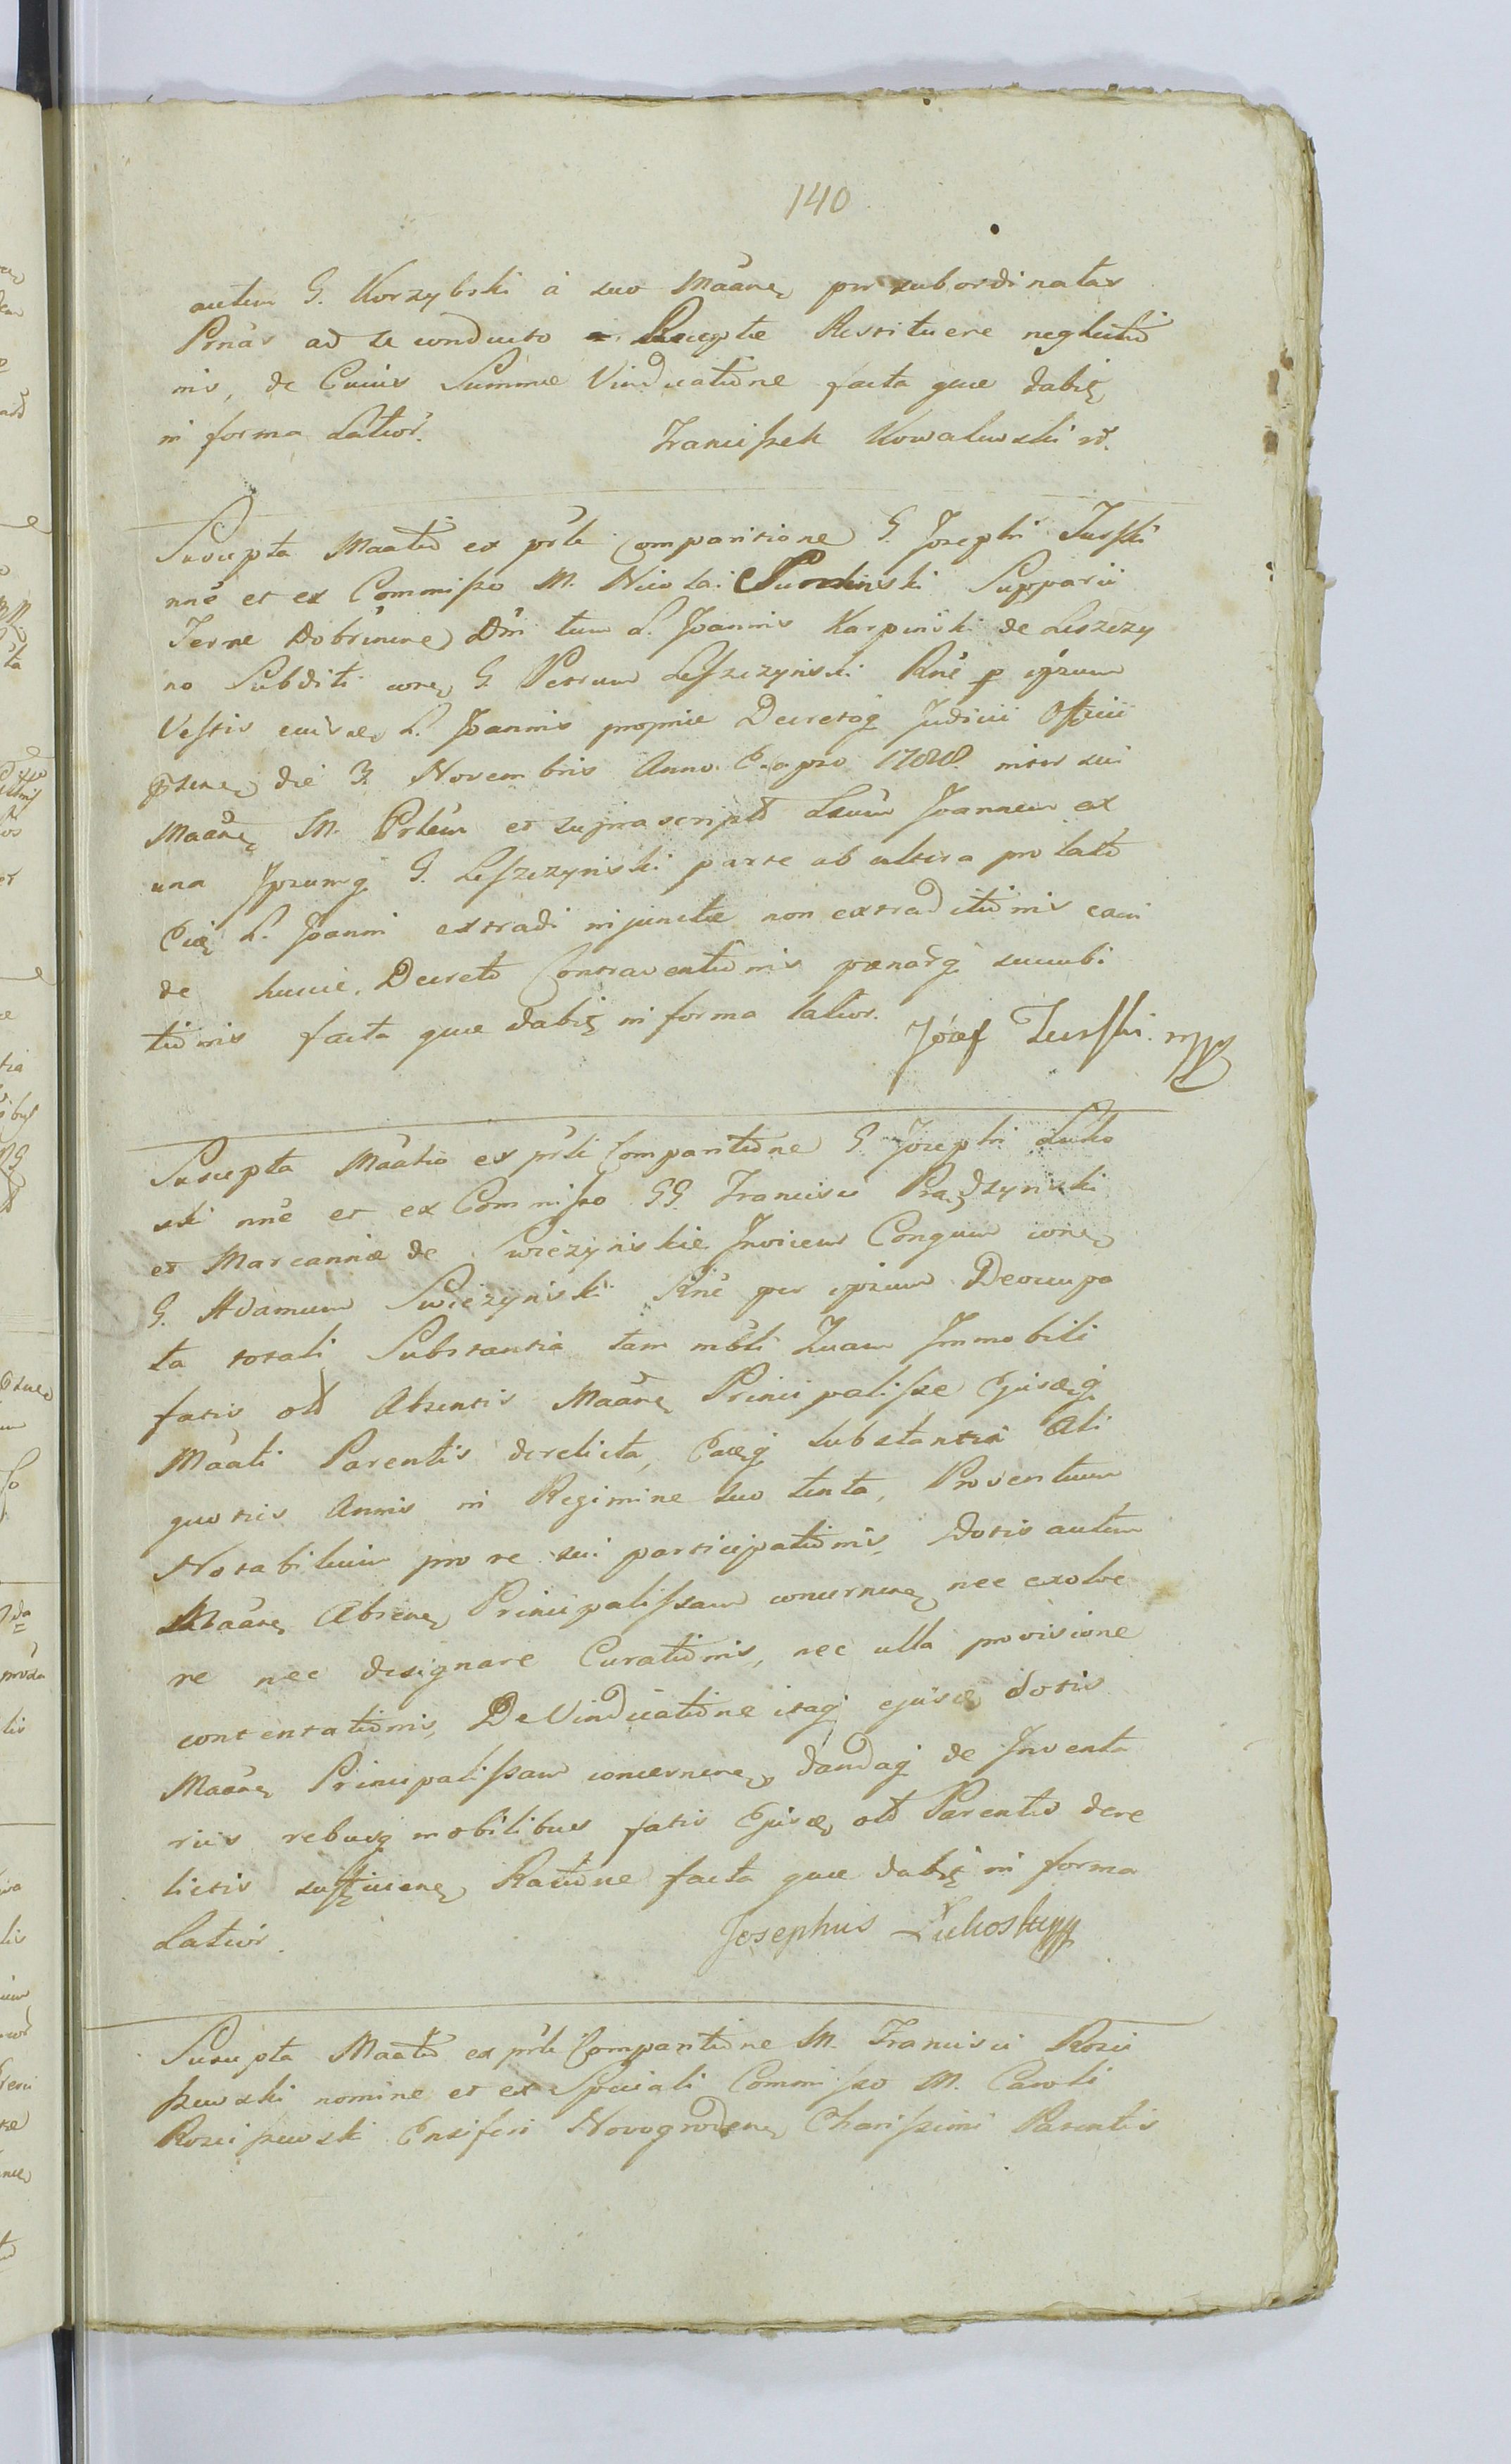 140
autem G. Korzybski à suo Maane per subordinatas
Pnas ad se conducto Receptae Restituere neglectio
nis, de Cuius Summae Vindicatione facta quae dabit
in forma Latior. Franciszek Kowalewski
Suscepta Maatio ex prli Comparitione G. Josephi Turski
nne et ex Commisso M. Nicolai Sumiński Supparii
Terrae Dobrinene Dni tum L. Joannis Karpiński de Leszczy
no Subditi cone G. Petrum Leszczyński Rne p ipsum
Vestis eiusdem L. Joannis propriae Decretoq Judicii Officii
psene die 3. Novembris Anno E. apso 1788. inter sui
Maane M. Prlem et suprascript Lbum Joannem ex
una Ipsumq G. Leszczyński parte ab altera prolato
Eid L. Joanni extradi injunctae non extraditionis eam
de huic Decreto Contraventionis paenarq succubi
tionis facta quae dabit in forma latior. Józef Turski mpp
Suscepta Maatio ex prli Comparitione G. Josephi Łuko
ski nne et ex Commisso GG. Francisci Prądzyński
et Mareannae de Swiezyńskie Invicem Congum cone
G. Adamum Swiezyński Rne per ipsum Deoccupa
ta totali Substantia tam mbli Quam Immobili
fatis olt Absentis Maane Principalissae Ejusdq
Maati Parentis derelicta, Eaeq substantia Ali
quotis Annis in Regimine suo tenta, Proventuum
Notabilium pro re sui participationis, Dotis autem
Maane Absene Principalissam concernene nec exolve
re nec designare Curationis, nec ulla provisione
contentationis, De Vindicatione itaq ejusd dotis
Maane Principalissam concernene, dandaq de Inventa
riis rebusq mobilibus fatis Ejusd olt Parentis dere
lictis sufficiene Ratione facta quae dabit in forma
Latior. Josephus Łukoski mpp
Suscepta Maatio ex prli Comparitione M. Francisci Rości
szewski nomine et ex Speciali Commisso M. Caroli
Rościszewski Ensiferi Novogrodene Charissimi Parentis